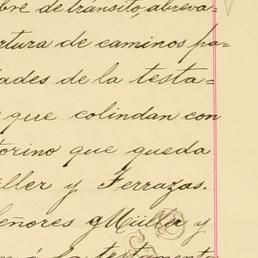 bre de tránsito, abreva=
rtura de caminos pa=
dades de la testa=
que colindan con
torino que queda
üller y Terrazas.
eñores Müller y
á la testamenta